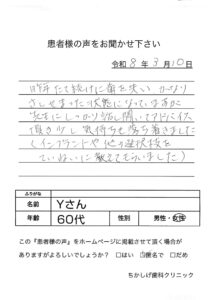 患者様の声をお聞かせ下さい
令和 8 年 3 月 10 日
昨年 たて続けに歯を失い かなり
さしせまった状態になっていますが
先生にしっかり話し聞いてアドバイス
頂き少し気持ちも落ち着きました
(インプラントや他の選択肢を
ていねいに教えてもらいました)
ふりがな
名前 Yさん
年齢 60代 性別 男性・女性
この『患者様の声』をホームページに掲載させて頂く場合が
ありますがよろしいでしょうか? □はい ☑匿名で □だめ
ちかしげ歯科クリニック